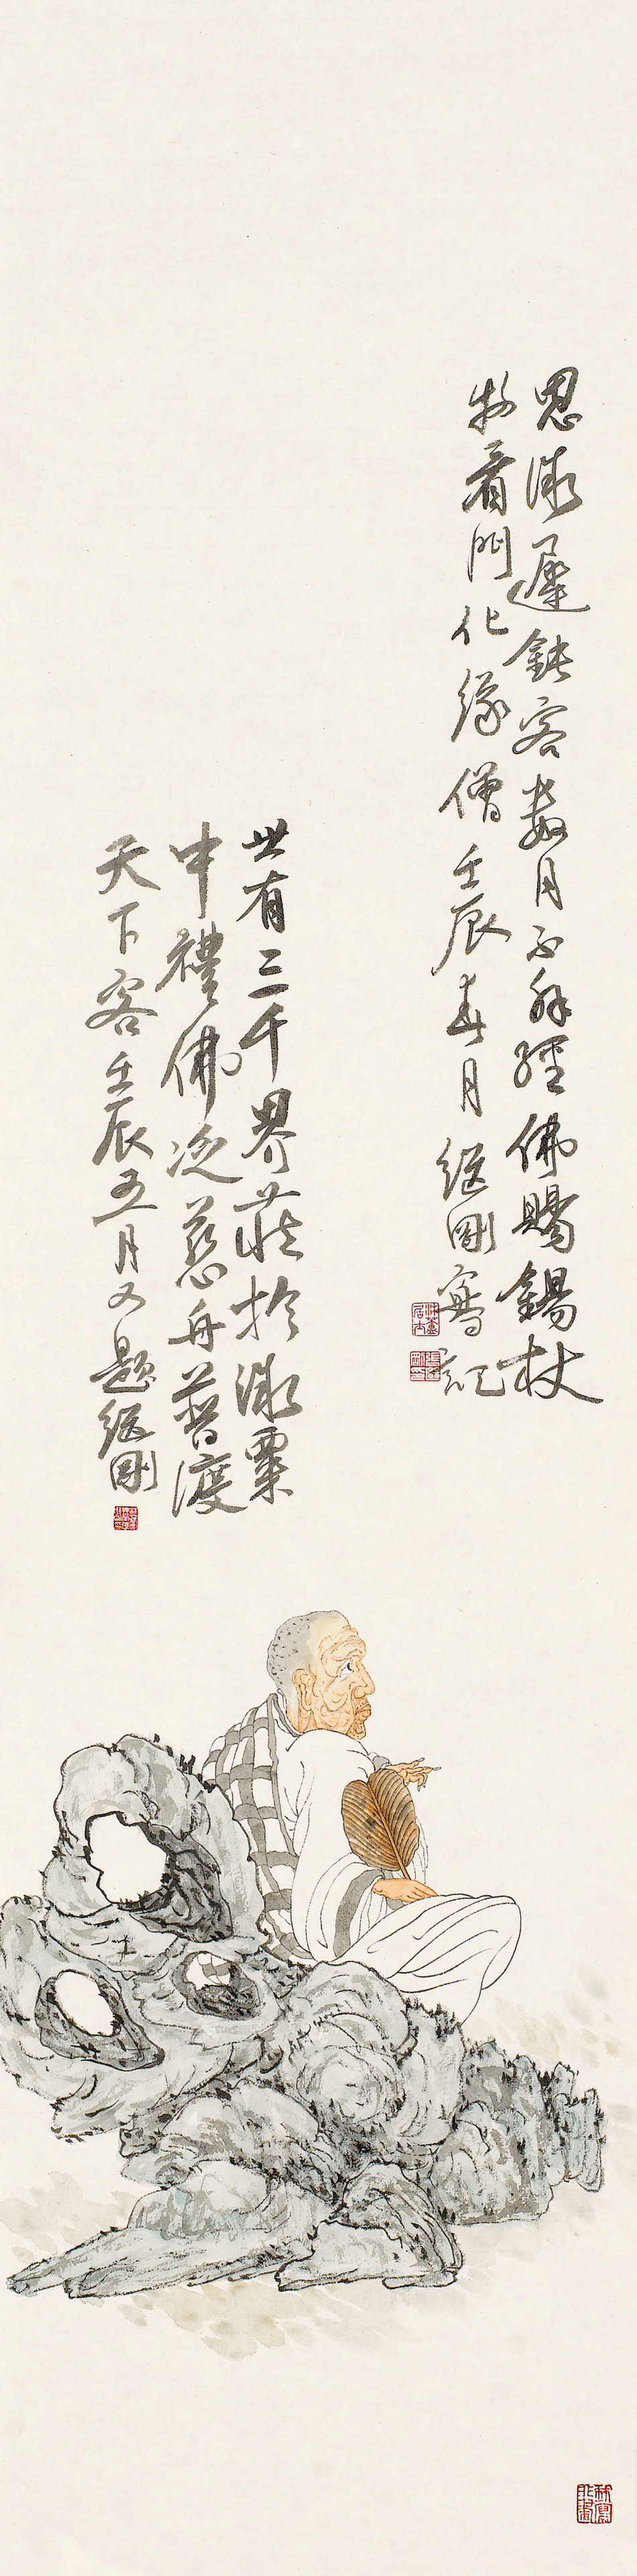 思遲鈍客數月不解經佛賜錫杖
物看門化緣僧壬辰春月繼剛寫記
世有三千界藏於粟
中禮佛泛慈舟普渡
天下客壬辰五月又題繼剛